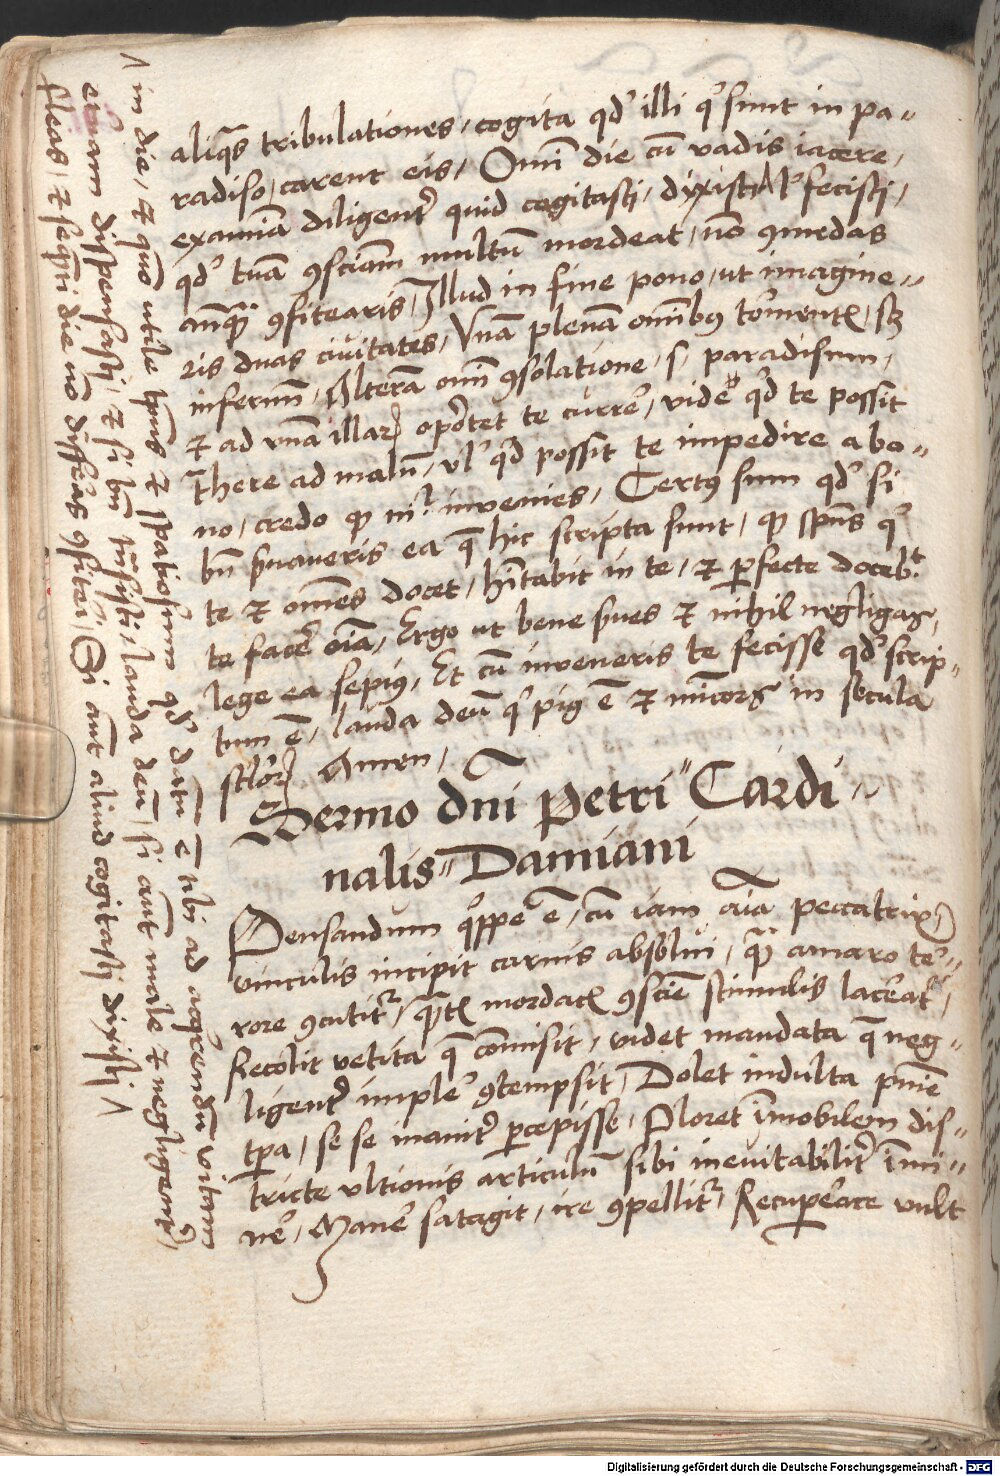 aliq̃s tribulationes, cogita qd' illi q' sunt in pa-
radiso, carent eis, Omi die cũ vadis iacere,
examiã diligent' quid cogitasti, dixisti ^ l' fecisti,
qd' tuã ꝯsciam multũ mordeat, nõ ꝯmedas
anq̃ꝫ ꝯfitearis, Illud in fine pono, ut imagine-
ris duas ciuitates, Vnã plenã omĩbꝰ tormentꝭ, sꝫ
infernũ, Alterã omi ꝯsolatione, s. paradisum,
⁊ ad vnã illaꝝ oportet te curre', vide qd te possit
t̃here ad malũ, vl' qd possit te impedire a bo-
no, credo ꝙ ni'l inuenies, Certꝰ sum qd' si
bñ s'uaueris ea q̃ hic scripta sunt, ꝙ sp̃us q'
te ⁊ om̃es docet, h̃itabit in te, ⁊ ꝑfecte doceb't
te face' oĩa, Ergo ut bene s'ues ⁊ nihil negligas,
lege ea sepiꝰ, Et cũ inueneris te fecisse qd' scrip-
tum ẽ, lauda deũ q' piꝰ ẽ ⁊ mĩcors in secula
sc'loꝝ Amen,
Sermo dñi Petri Cardi-
nalis Damiani
Pensandum q'ppe ẽ, cũ iam aĩa peccatrix
vinculis incipit carnis absolui, q̃ꝫ amaro te'-
rore ꝯcutit', q̃ꝫtꝭ mordacꝭ ꝯsciẽ stimulis lac'eat',
Recolit vetita q̃ cõmisit, videt mandata q̃ neg-
ligent' imple' ꝯtempsit, Dolet indulta pñie
tp̃a, se se inanit' ꝑcepisse, Ploret ĩmobilem dis-
tricte vltionis articulũ sibi ineuitabilit' ĩmi-
ne', Mane' satagit, ire ꝯpellit', Recuꝑare vult
^ in die, ⁊ quõ utile tp̃us ⁊ spatiosum qd' datũ ẽ tibi ad acq'rendũ vitam
et'nam dispensasti, ⁊ si bñ t̃nsisti, lauda deũ, si aut male ⁊ negligent',
fleas, ⁊ seq̃nti die nõ differas ꝯfiteri, Si aũt aliud cogitasti dixisti ^
Digitalisierung gefördert durch die Deutsche Forschungsgemeinschaft - DFG